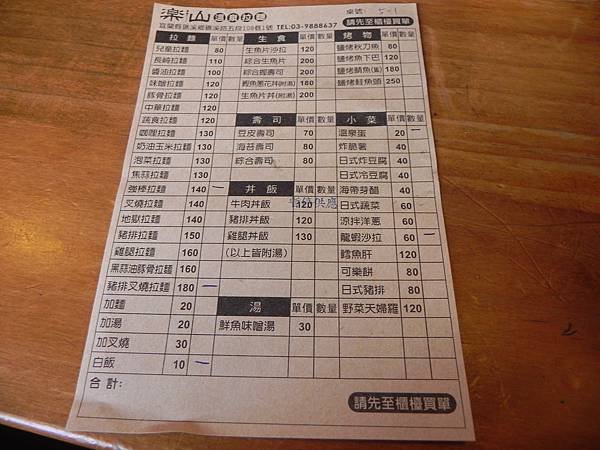 楽山 溫泉拉麵
桌號: 5-1
宜蘭縣礁溪鄉礁溪路五段108巷1號 TEL:03-9888637
請先至櫃檯買單
拉麵 單價 數量
兒童拉麵 80
長崎拉麵 110
醬油拉麵 100
味噌拉麵 120
豚骨拉麵 120
中華拉麵 120
蔬食拉麵 120
咖哩拉麵 130
奶油玉米拉麵 130
泡菜拉麵 130
焦蒜拉麵 130
強棒拉麵 140 一
叉燒拉麵 140
地獄拉麵 140
豬排拉麵 150
雞腿拉麵 160
黑蒜油豚骨拉麵 160
豬排叉燒拉麵 180 一
加麵 20
加湯 20
加叉燒 30
白飯 10 一
生食 單價 數量
生魚片沙拉 120
綜合生魚片 200
綜合握壽司 200
鰹魚蔥花丼(附湯) 180
生魚片丼(附湯) 200
壽司 單價 數量
豆皮壽司 70
海苔壽司 80
綜合壽司 80
丼飯 單價 數量
牛肉丼飯 120
豬排丼飯 120
雞腿丼飯 130
(以上皆附湯)
湯 單價 數量
鮮魚味噌湯 30
烤物 單價 數量
鹽烤秋刀魚 80
鹽烤魚下巴 120
鹽烤鯖魚(薄) 180
鹽烤鮭魚頭 250
小菜 單價 數量
溫泉蛋 20 一
炸脆薯 40
日式炸豆腐 40
日式冷豆腐 40
海帶芽醋 40
日式蔬菜 60
涼拌洋蔥 60
龍蝦沙拉 60 一
鱈魚肝 120
可樂餅 80
日式豬排 80
野菜天婦羅 120
合計:
請先至櫃檯買單